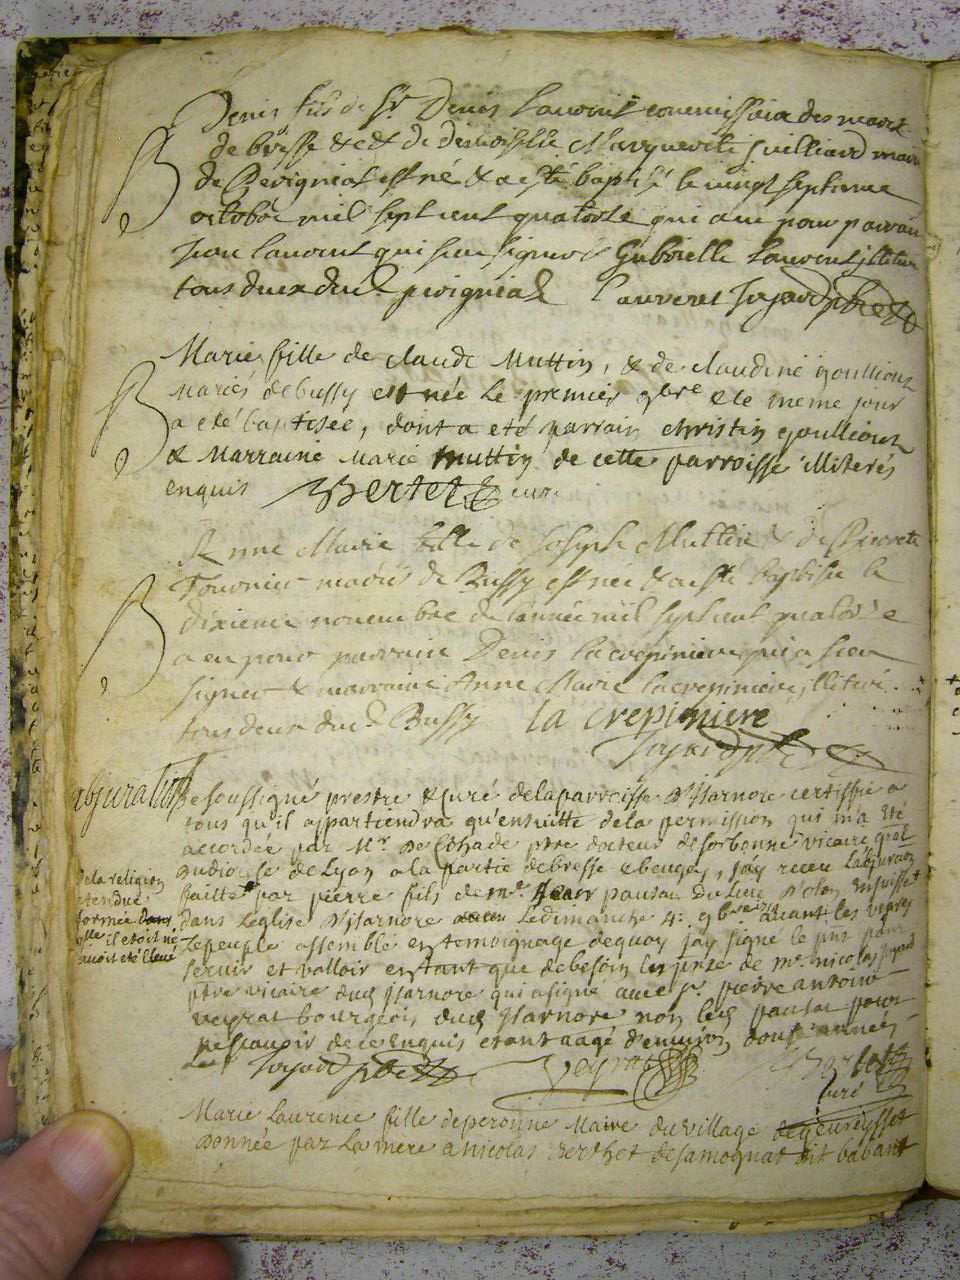 B
Denis fils de Sr Denis Lauvent commissaire des
de bresse &c & de demoiselle Marguerite Guilliard
de Pérignat est né & a esté baptisé le vingt septieme
octobre mil sept cent quatorze qui a eu pour parrain
Jean Lauvent qui sieu signer Gabrielle Lauvent
tous deux dud. perigniat Lauveret Joyard pbre
B
Marie fille de claude Muttin, & de claudine goullioux
Mariés de bussy est née le premier 9bre & le meme jour
a eté baptisée, dont a eté parrain christin goullioux
& Marraine Marie Muttin de cette parroisse illiterés
enquis Bertet cure
B
Anne Marie fille de Joseph Muttin & de Pierrete
Tournier mariés de Bussy est née & a esté baptisée le
dixieme novembre de l'année mil sept cent quatorze
a eu pour parrain Denis lacrepiniere qui a sieu
signer & marraine Anne Marie lacrepiniere, illiteré
tous deux dud. Bussy la crepiniere
Joyard pbre
abjuration
Je soussigné prestre & curé de la parroisse d'Isarnore certiffie a
tous qu'il appartiendra qu'ensuitte de la permission qui m'a eté
accordée par Mr. ptre docteur de sorbonne vicaire gnal
de Lyon a la partie de bresse & beugey, j'ay receu l'abjuration
de la religion
pretendue
formée dans
qlle il etoit né
avoit eté elevé
faitte par pierre fils de me. Jean pautau du lieu d'olon en suisse
dans l'eglise d'Isarnore le dimanche 4e 9bre avant les vepres
le peuple assemblé en temoignage de quoy j'ay signé le pnt pour
servir et valloir en tant que de besoin en pnce de me. nicolas joyard
ptre vicaire dud Isarnore qui a signé avec sr. pierre antoine
veyrat bourgeois dud Isarnore non led pautau pour
ne scavoir de ce enquis etant aagé d'environ douse années
Joyard pbre Veyrat Bertet
curé
Marie Laurence fille de peronne Maire du village de geureysset
donnée par la mere a nicolas Berthet de samognat dit babant